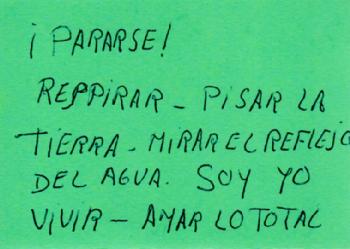 ¡PARARSE!
REPPIRAR - PISAR LA
TIERRA - MIRAR EL REFLEJO
DEL AGUA. SOY YO
VIVIR - AMAR LO TOTAL